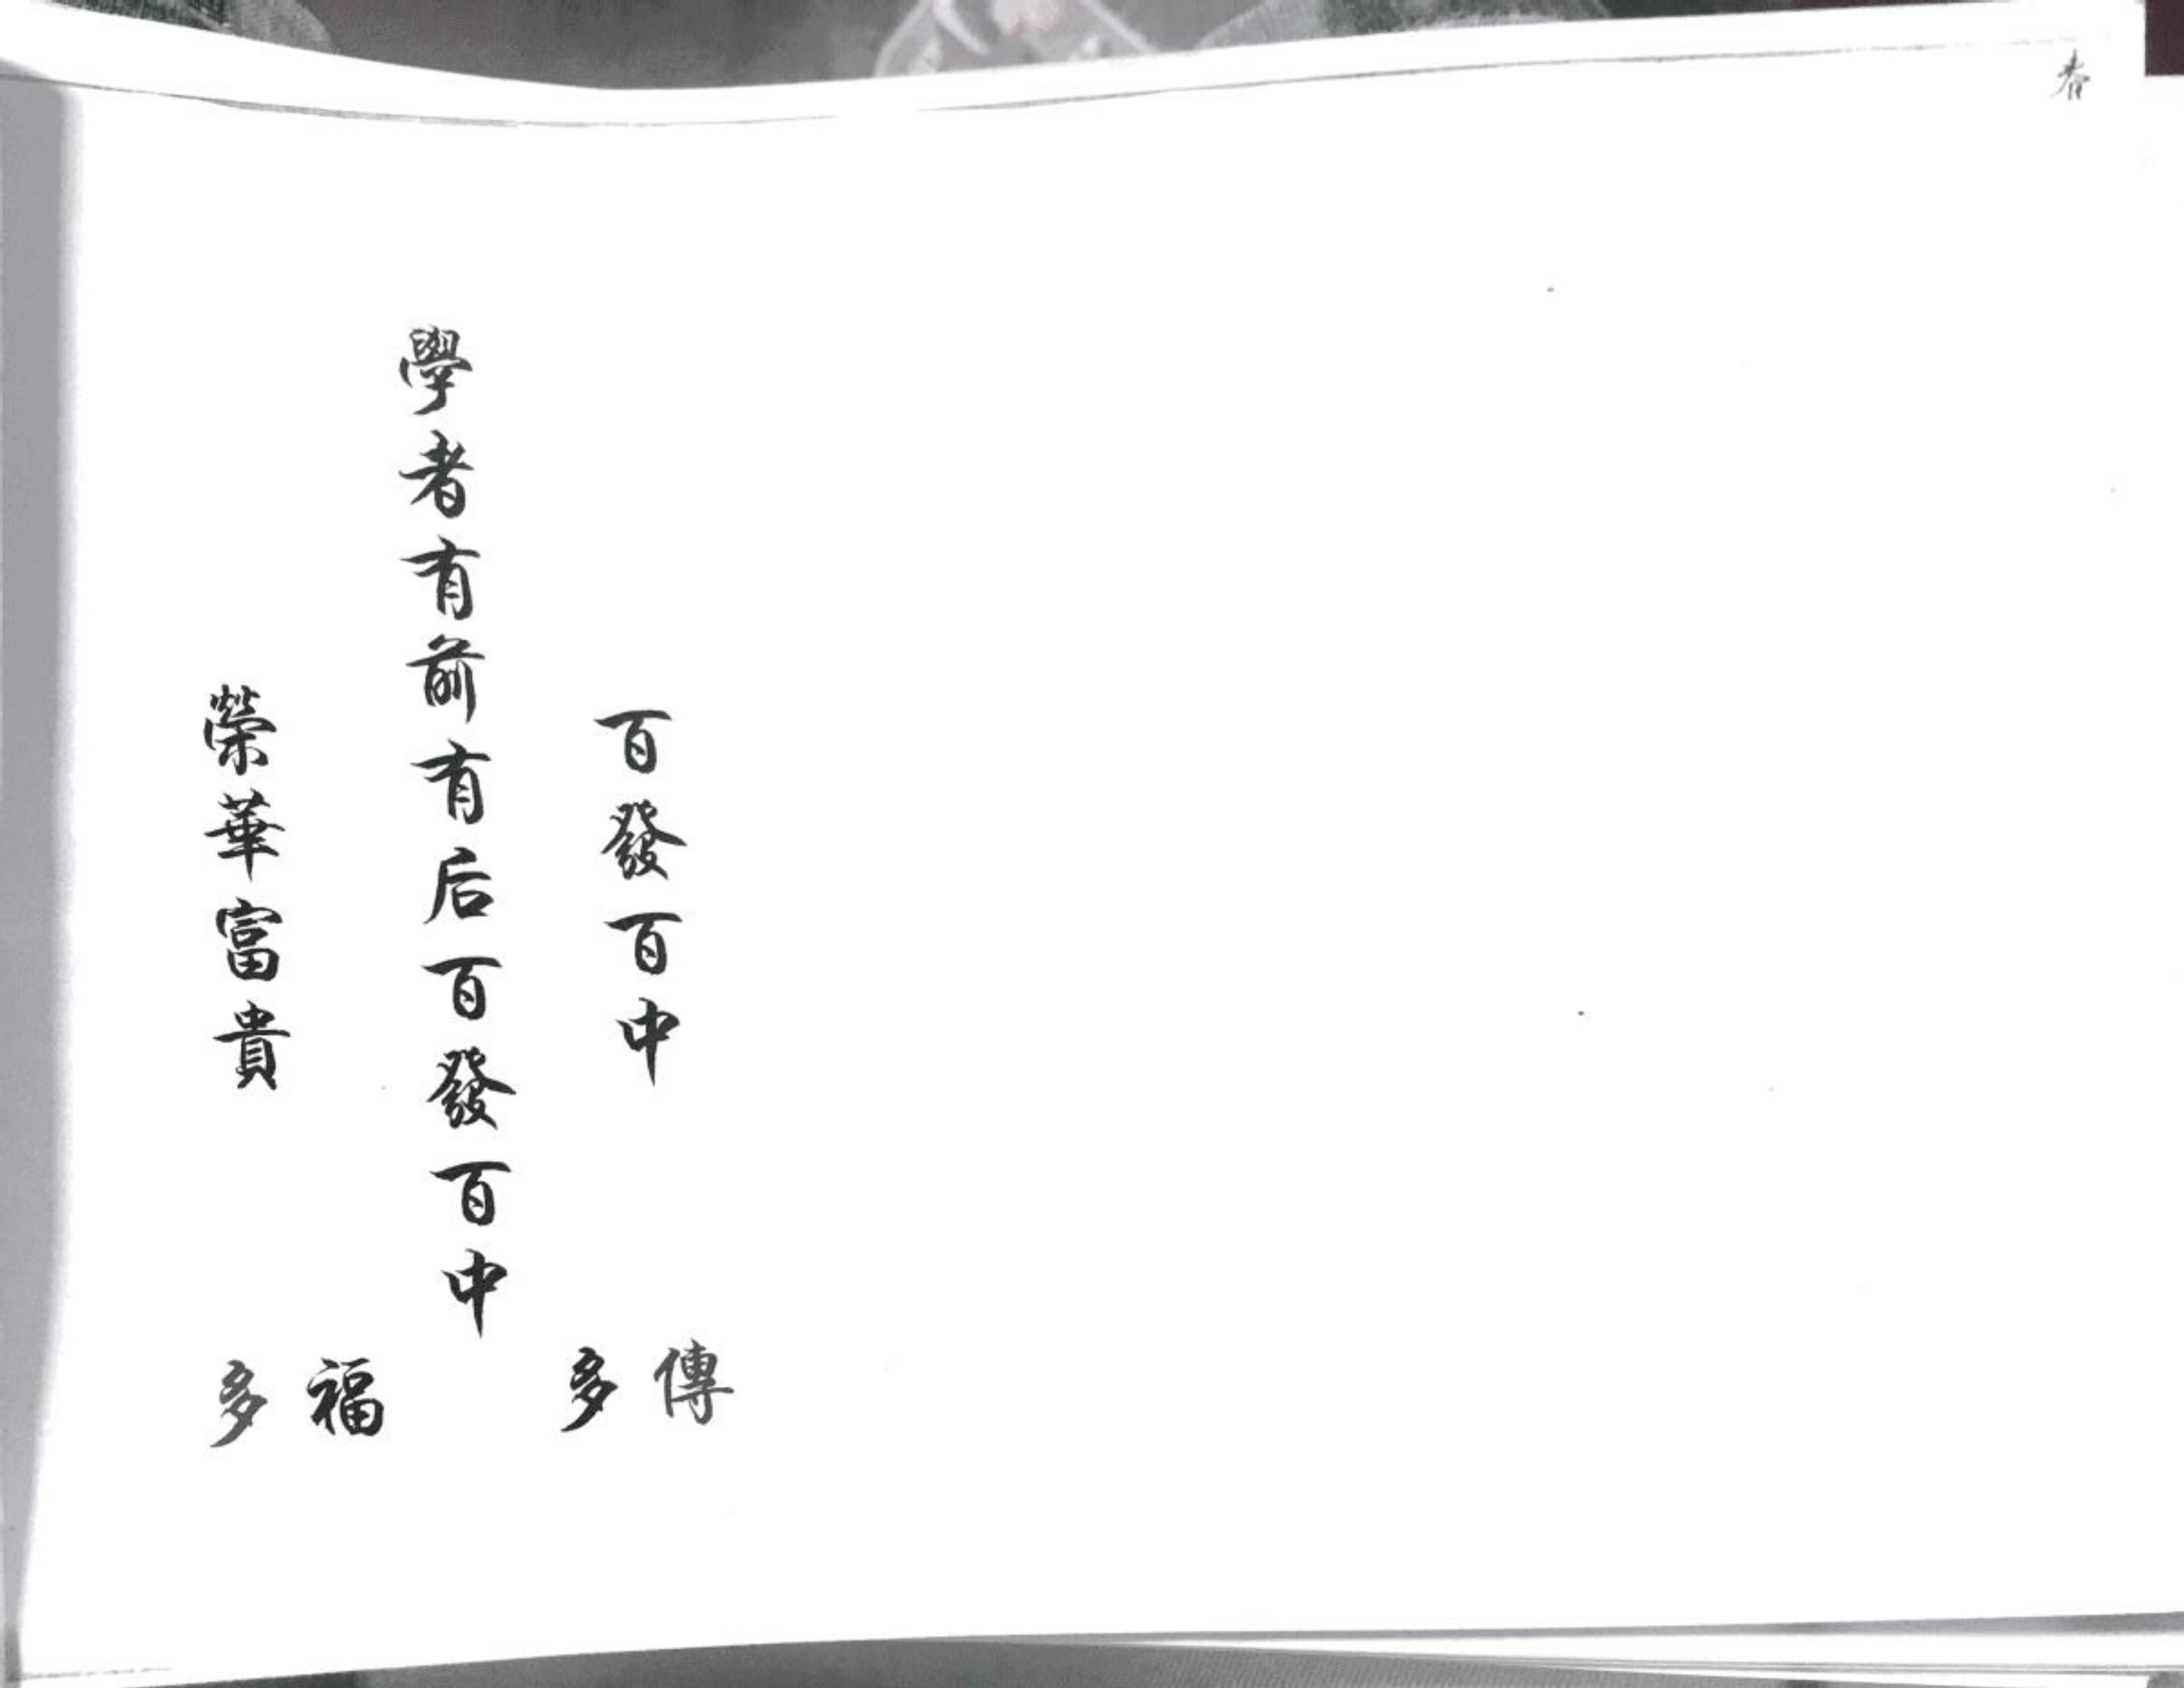 春
百發百中
學者有前有后百發百中
榮華富貴
傳多
福多